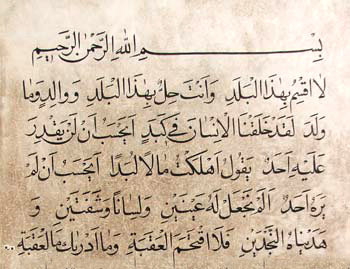 بسم الله الرحمن الرحيم
لا اقسم بهذا البلد وانت حل بهذا البلد ووالد وما
ولد لقد خلقنا الانسان في كبد ايحسب ان لن يقدر
عليه احد يقول اهلكت مالا لبدا ايحسب ان لم
يره احد الم نجعل له عينين ولسانا وشفتين و
هديناه النجدين فلا اقتحم العقبة وما ادريك ما العقبة